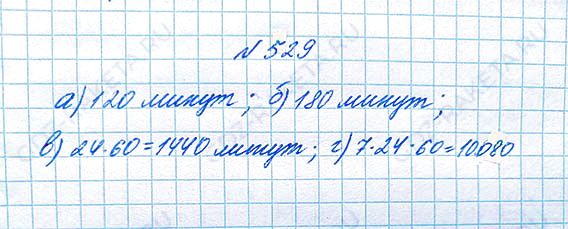 № 529
а) 120 минут; б) 180 минут;
в) 24·60=1440 минут; г) 7·24·60=10080